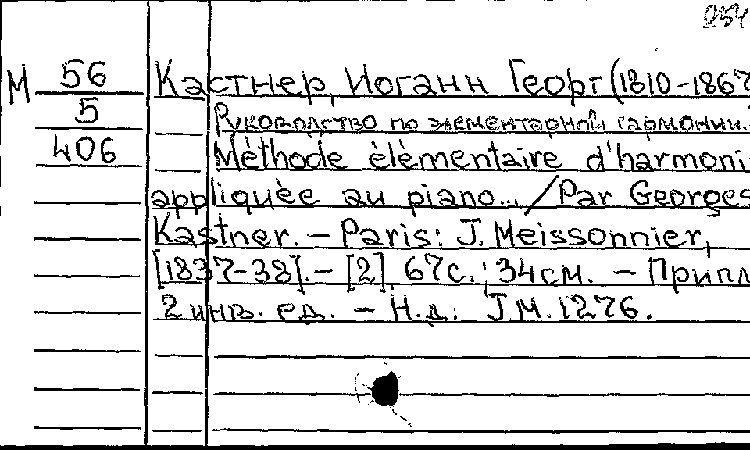 М 56 Кастнер, Иоганн Георг (1810-1867
5 Руководство по элементарной гармонии.
406 Méthode élémentaire d'harmoni
appliquée au piano... / Par Georges
Kastner. – Paris: J. Meissonnier,
[1837-38]. – [2], 67с.; 34см. – Припл
2 инв. ед. – Н.д.: J.M.1276.